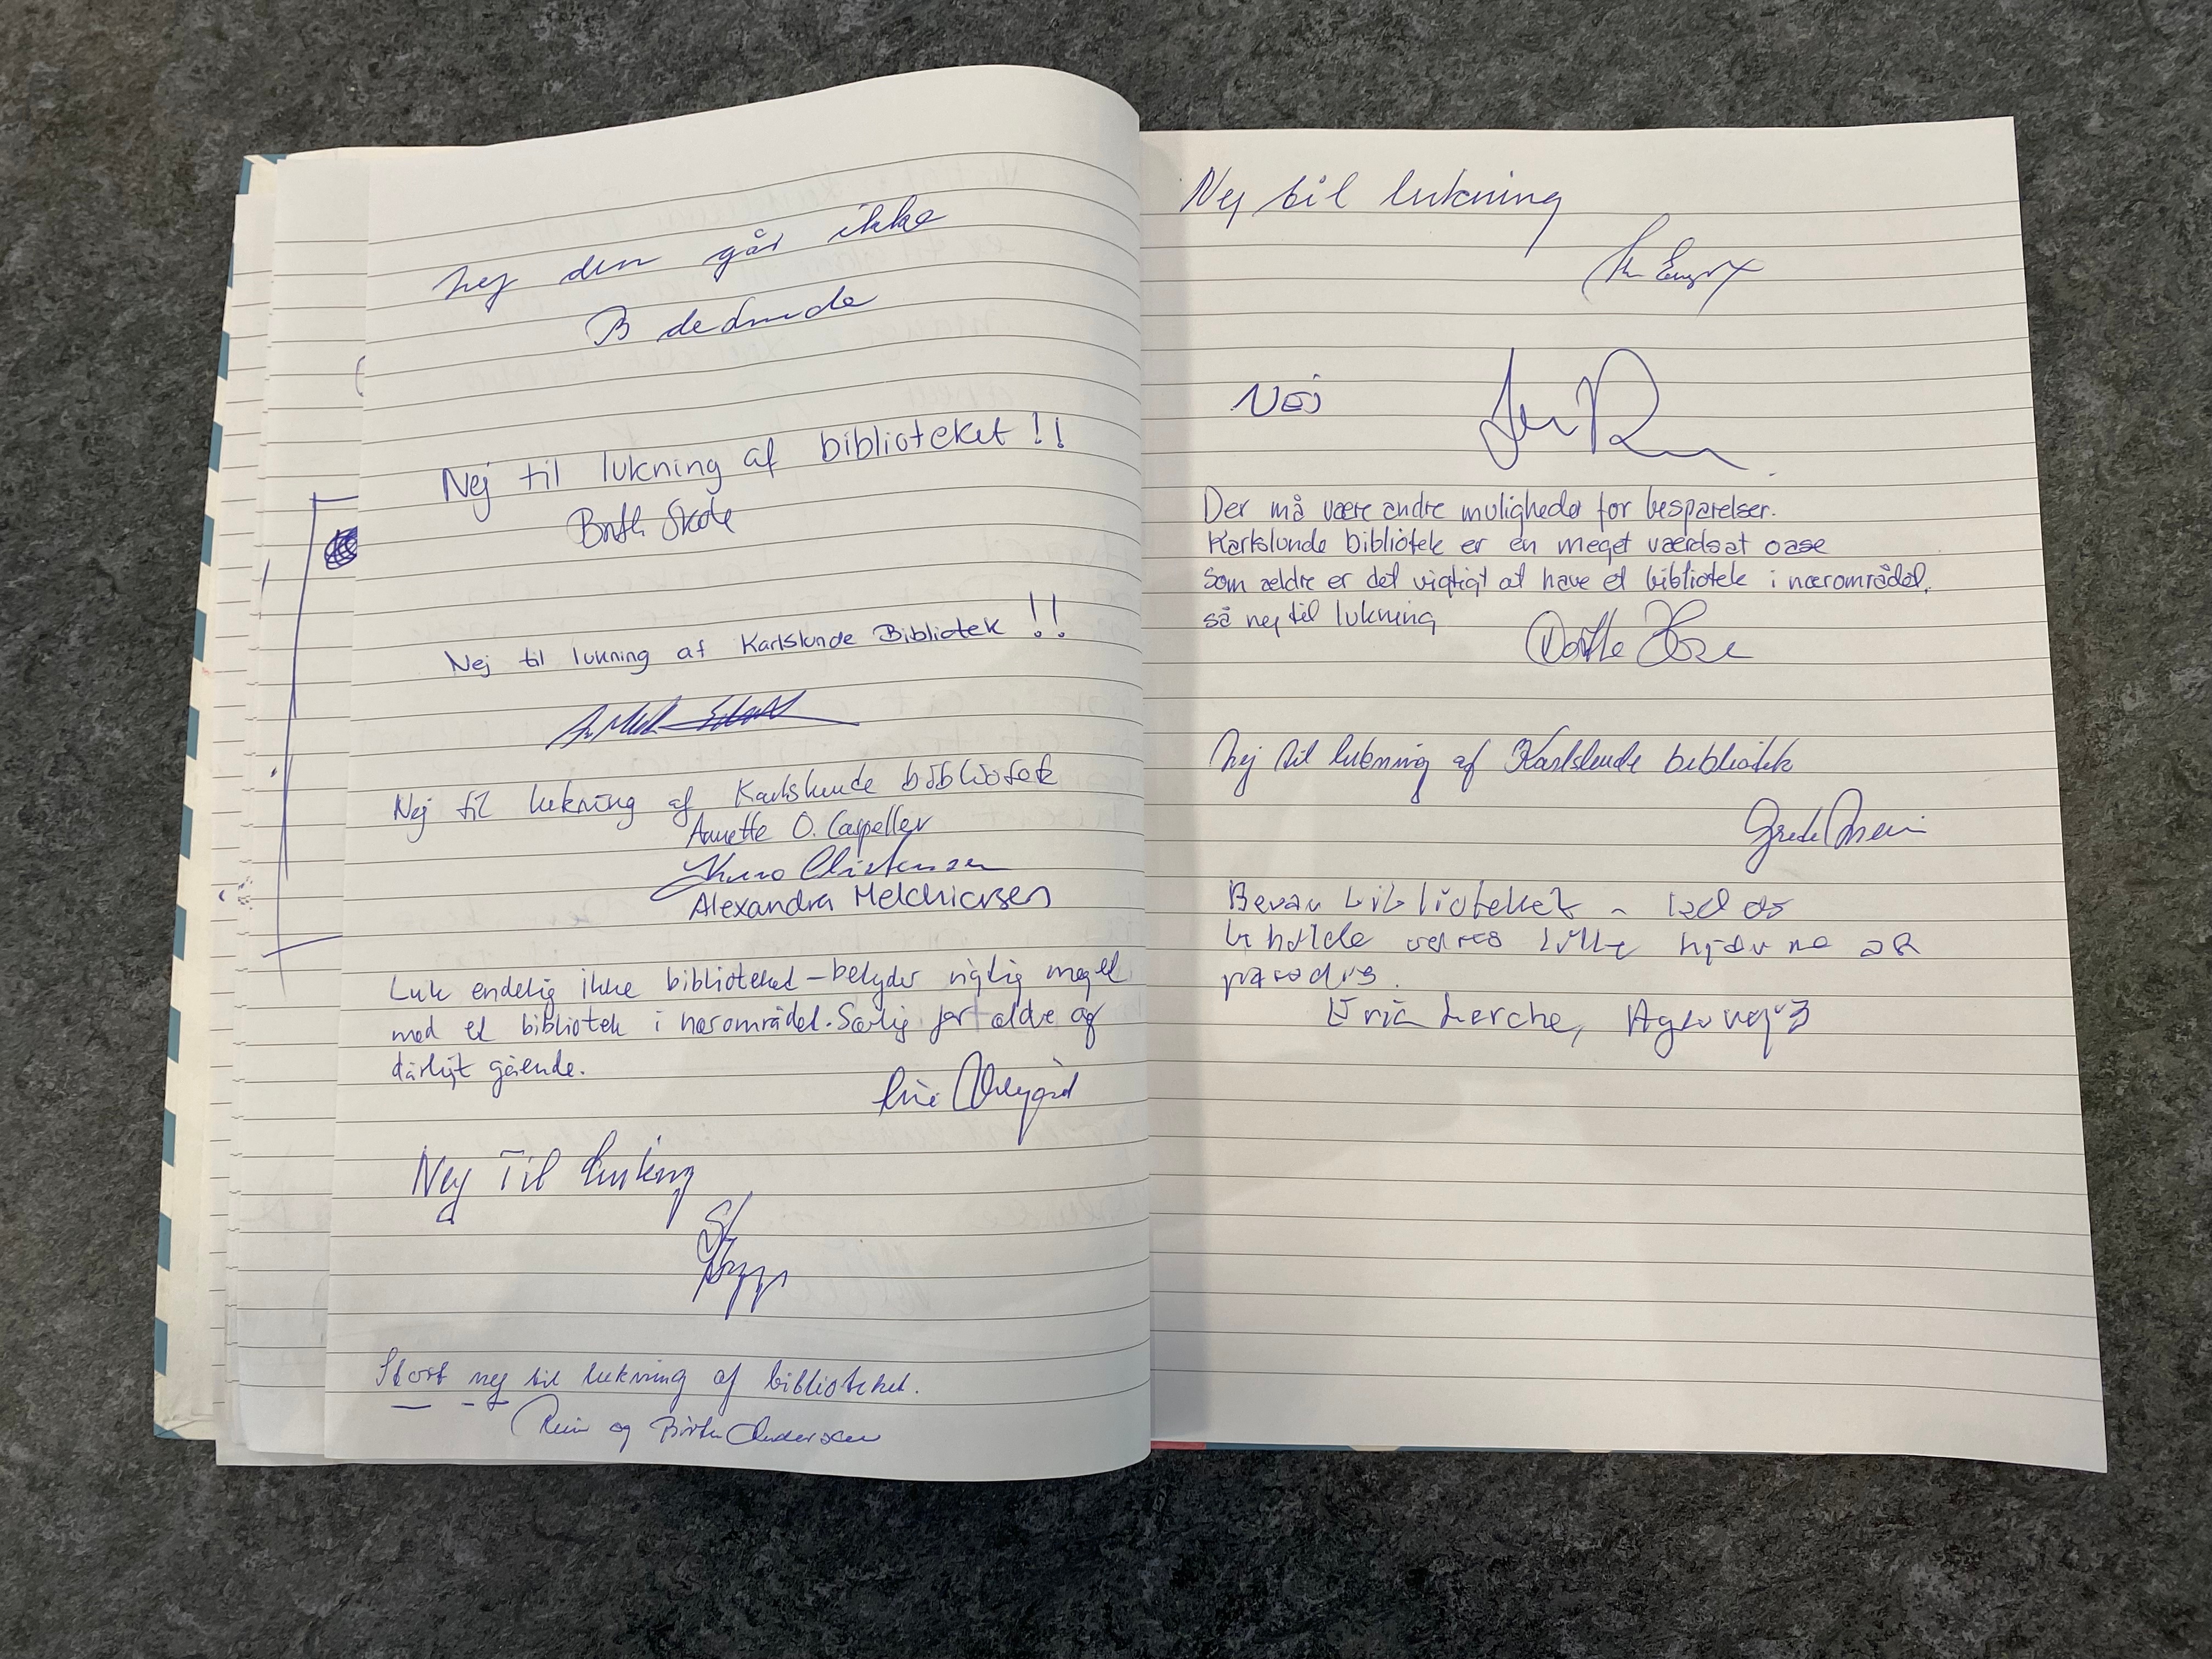 Nej den går ikke
B
Nej til lukning af biblioteket !!
Skote
Nej til lukning af Karlslunde Bibliotek !!
Nej til lukning af Karlslunde bibliotek
Annette O. Cappeller
Christensen
Alexandra Melchiorsen
Luk endelig ikke biblioteket – betyder rigtig meget
med et bibliotek i nærområdet. Særlig for ældre og
dårligt gående.
Nej Til lukning
Stort nej til lukning af biblioteket.
og Birthe Andersen
Nej til lukning
Nej
Der må være andre muligheder for besparelser.
Karlslunde bibliotek er en meget værdsat oase
Som ældre er det vigtigt at have et bibliotek i nærområdet,
så nej til lukning
Dorthe
Nej til lukning af Karlslunde bibliotek
Grete
Bevar biblioteket – lad os
beholde vores lille hjørne af
paradis.
Lerche, Agervej 3